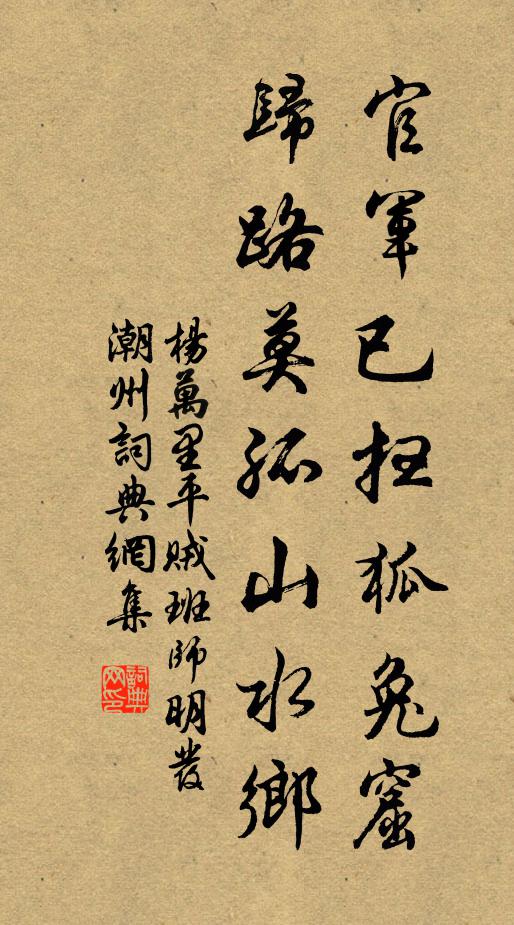 官軍已掃狐兔窟
歸路莫孤山水鄉
楊萬里平賊班師明發
潮州詞典網集
詞典網印